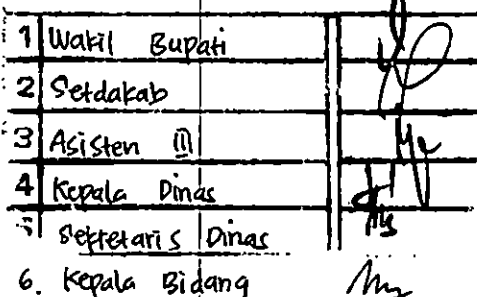 1 Wakil Bupati
2 Setdakab
3 Asisten III
4 Kepala Dinas
Sekretaris Dinas
6. Kepala Bidang